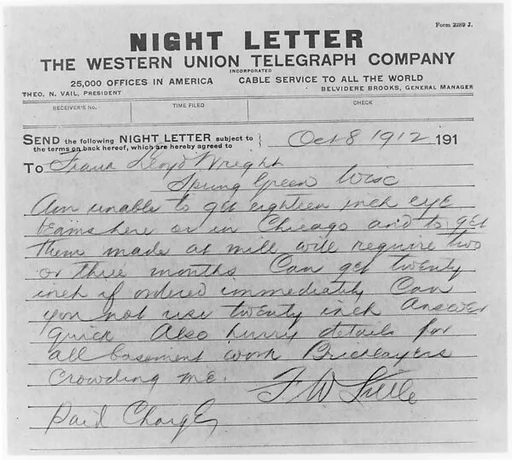 Form 2289 J.
NIGHT LETTER
THE WESTERN UNION TELEGRAPH COMPANY
INCORPORATED
25,000 OFFICES IN AMERICA CABLE SERVICE TO ALL THE WORLD
THEO. N. VAIL, PRESIDENT BELVIDERE BROOKS, GENERAL MANAGER
RECEIVER'S No. TIME FILED CHECK
SEND the following NIGHT LETTER subject to
the terms on back hereof, which are hereby agreed to
Oct 8 1912 191
To Frank Lloyd Wright
Spring Green Wisc
Am unable to get eighteen inch eye
beams here or in Chicago and to get
them made at mill will require two
or three months Can get twenty
inch if ordered immediately Can
you not use twenty inch Answer
quick Also hurry details for
all basement work Bricklayers
crowding me.
F W Little
Paid Charge